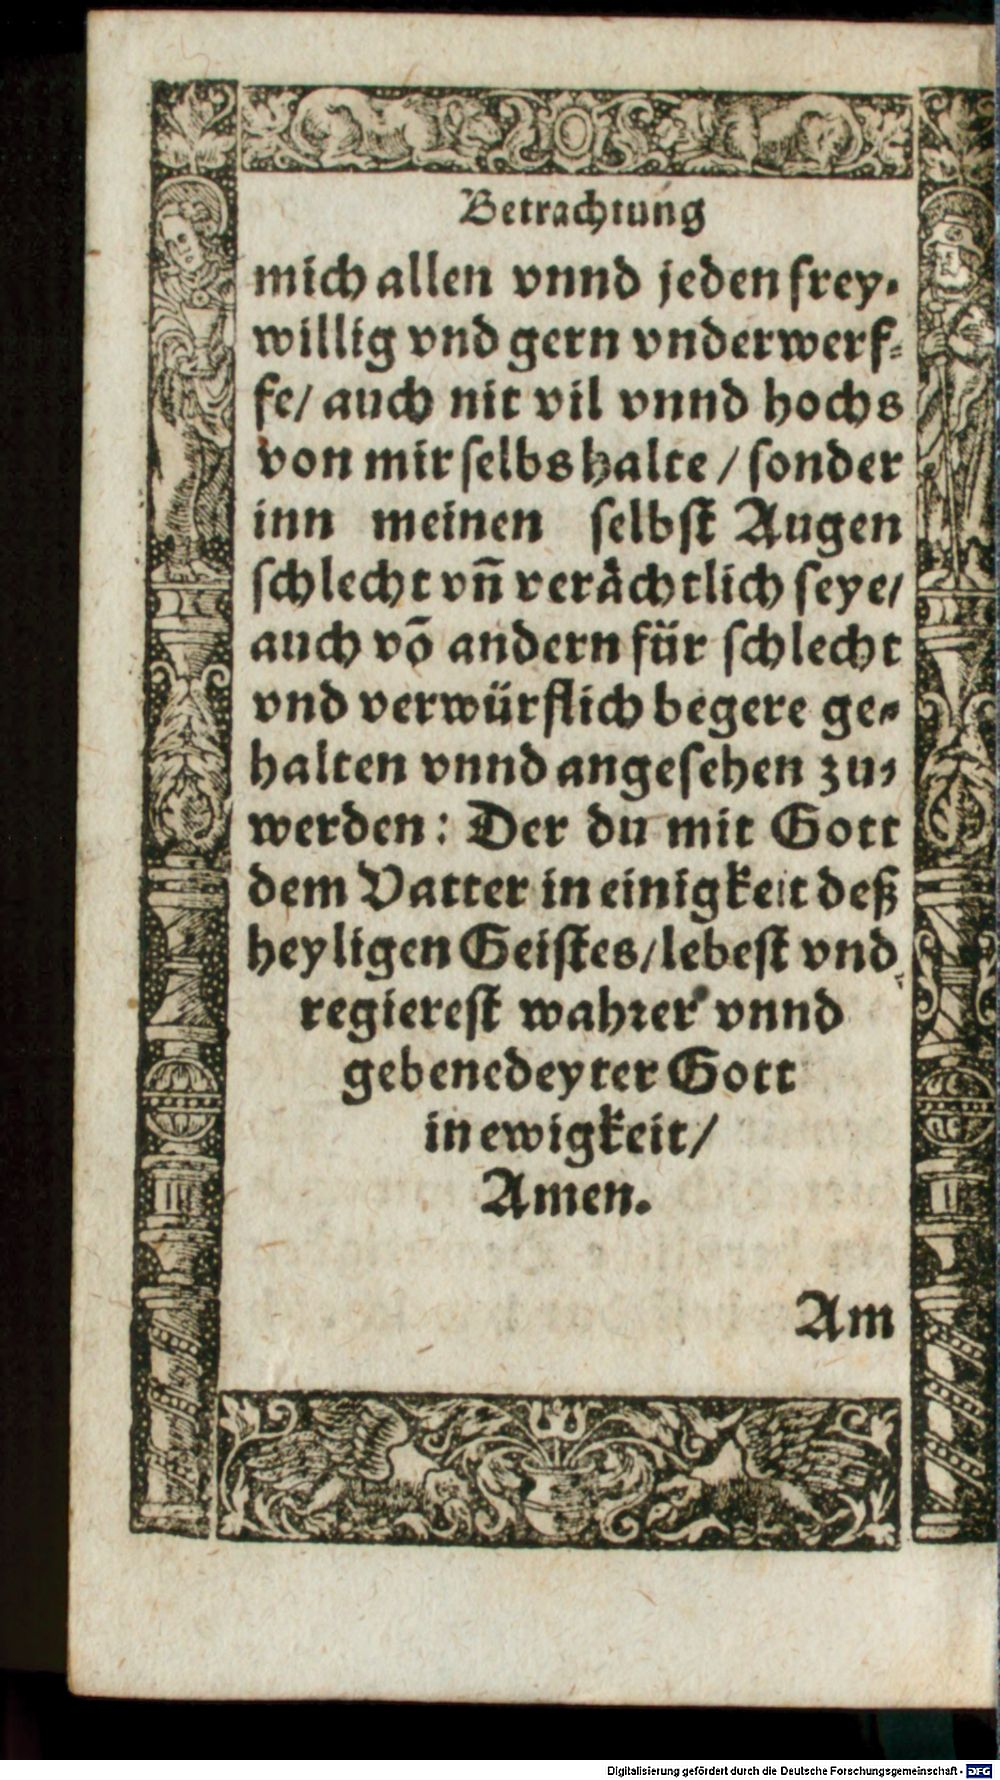 Betrachtung
mich allen vnnd jeden frey-
willig vnd gern vnderwerf-
fe/ auch nit vil vnnd hochs
von mir selbs halte / sonder
inn meinen selbst Augen
schlecht vñ verächtlich seye/
auch võ andern für schlecht
vnd verwürflich begere ge-
halten vnnd angesehen zu-
werden: Der du mit Gott
dem Vatter in einigkeit deß
heyligen Geistes/ lebest vnd
regierest wahrer vnnd
gebenedeyter Gott
in ewigkeit/
Amen.
Am
Digitalisierung gefördert durch die Deutsche Forschungsgemeinschaft - DFG